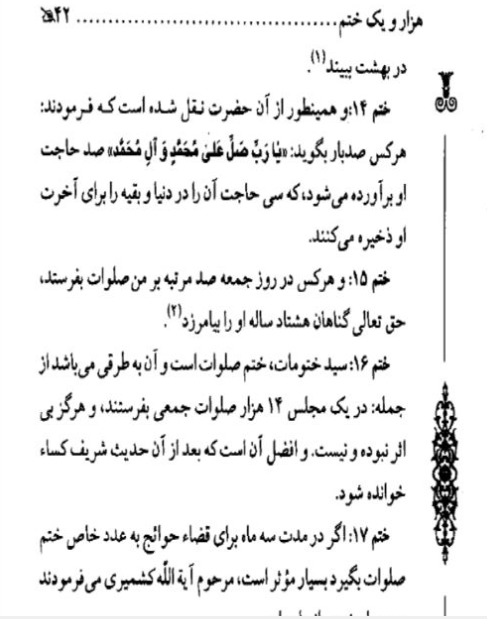 هزار و یک ختم ........................................ ۴۲
در بهشت ببیند(۱).
ختم ۱۴: و همینطور از آن حضرت نقل شده است که فرمودند:
هرکس صدبار بگوید: «یٰا رَبِّ صَلِّ عَلیٰ مُحَمَّدٍ وَ آلِ مُحَمَّد» صد حاجت
او برآورده می‌شود، که سی حاجت آن را در دنیا و بقیه را برای آخرت
او ذخیره می‌کنند.
ختم ۱۵: و هرکس در روز جمعه صد مرتبه بر من صلوات بفرستد،
حق تعالی گناهان هشتاد ساله او را بیامرزد(۲).
ختم ۱۶: سید ختومات، ختم صلوات است و آن به طرقی می‌باشد از
جمله: در یک مجلس ۱۴ هزار صلوات جمعی بفرستند، و هرگز بی
اثر نبوده و نیست. و افضل آن است که بعد از آن حدیث شریف کساء
خوانده شود.
ختم ۱۷: اگر در مدت سه ماه برای قضاء حوائج به عدد خاص ختم
صلوات بگیرد بسیار مؤثر است، مرحوم آیة اللّه کشمیری می‌فرمودند